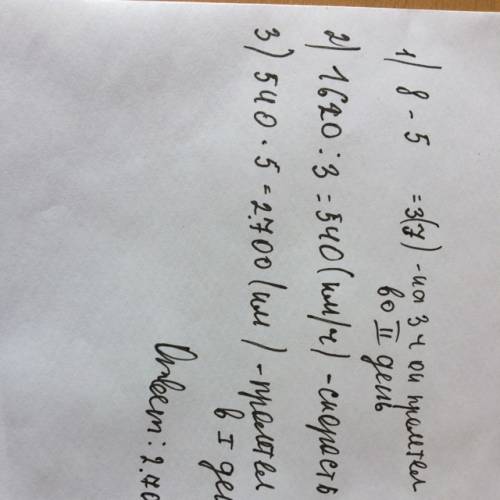 1) 8 - 5 = 3(7) - на 3 ч он пролетел
во II день
2) 1620 : 3 = 540 (км/ч) - скорость
3) 540 · 5 = 2.700 (км) - пролетел
в I ден
Ответ: 2.70